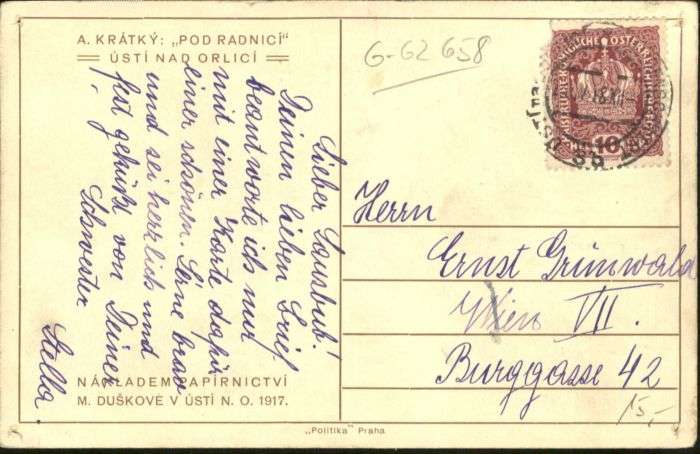 A. KRÁTKÝ: „POD RADNICÍ"
ÚSTÍ NAD ORLICÍ
G-62 658
Lieber Lausbub!
Deinen lieben Brief
beantworte ich nur
mit einer Karte dafür
einer schönen. Lerne brav
und sei herzlich und
fest geküßt von Deiner
Schwester
Stella.
10
Herrn
Ernst Grünwald
Wien VII.
Burggasse 42
15,-
NÁKLADEM PAPÍRNICTVÍ
M. DUŠKOVÉ V ÚSTÍ N. O. 1917.
„Politika" Praha